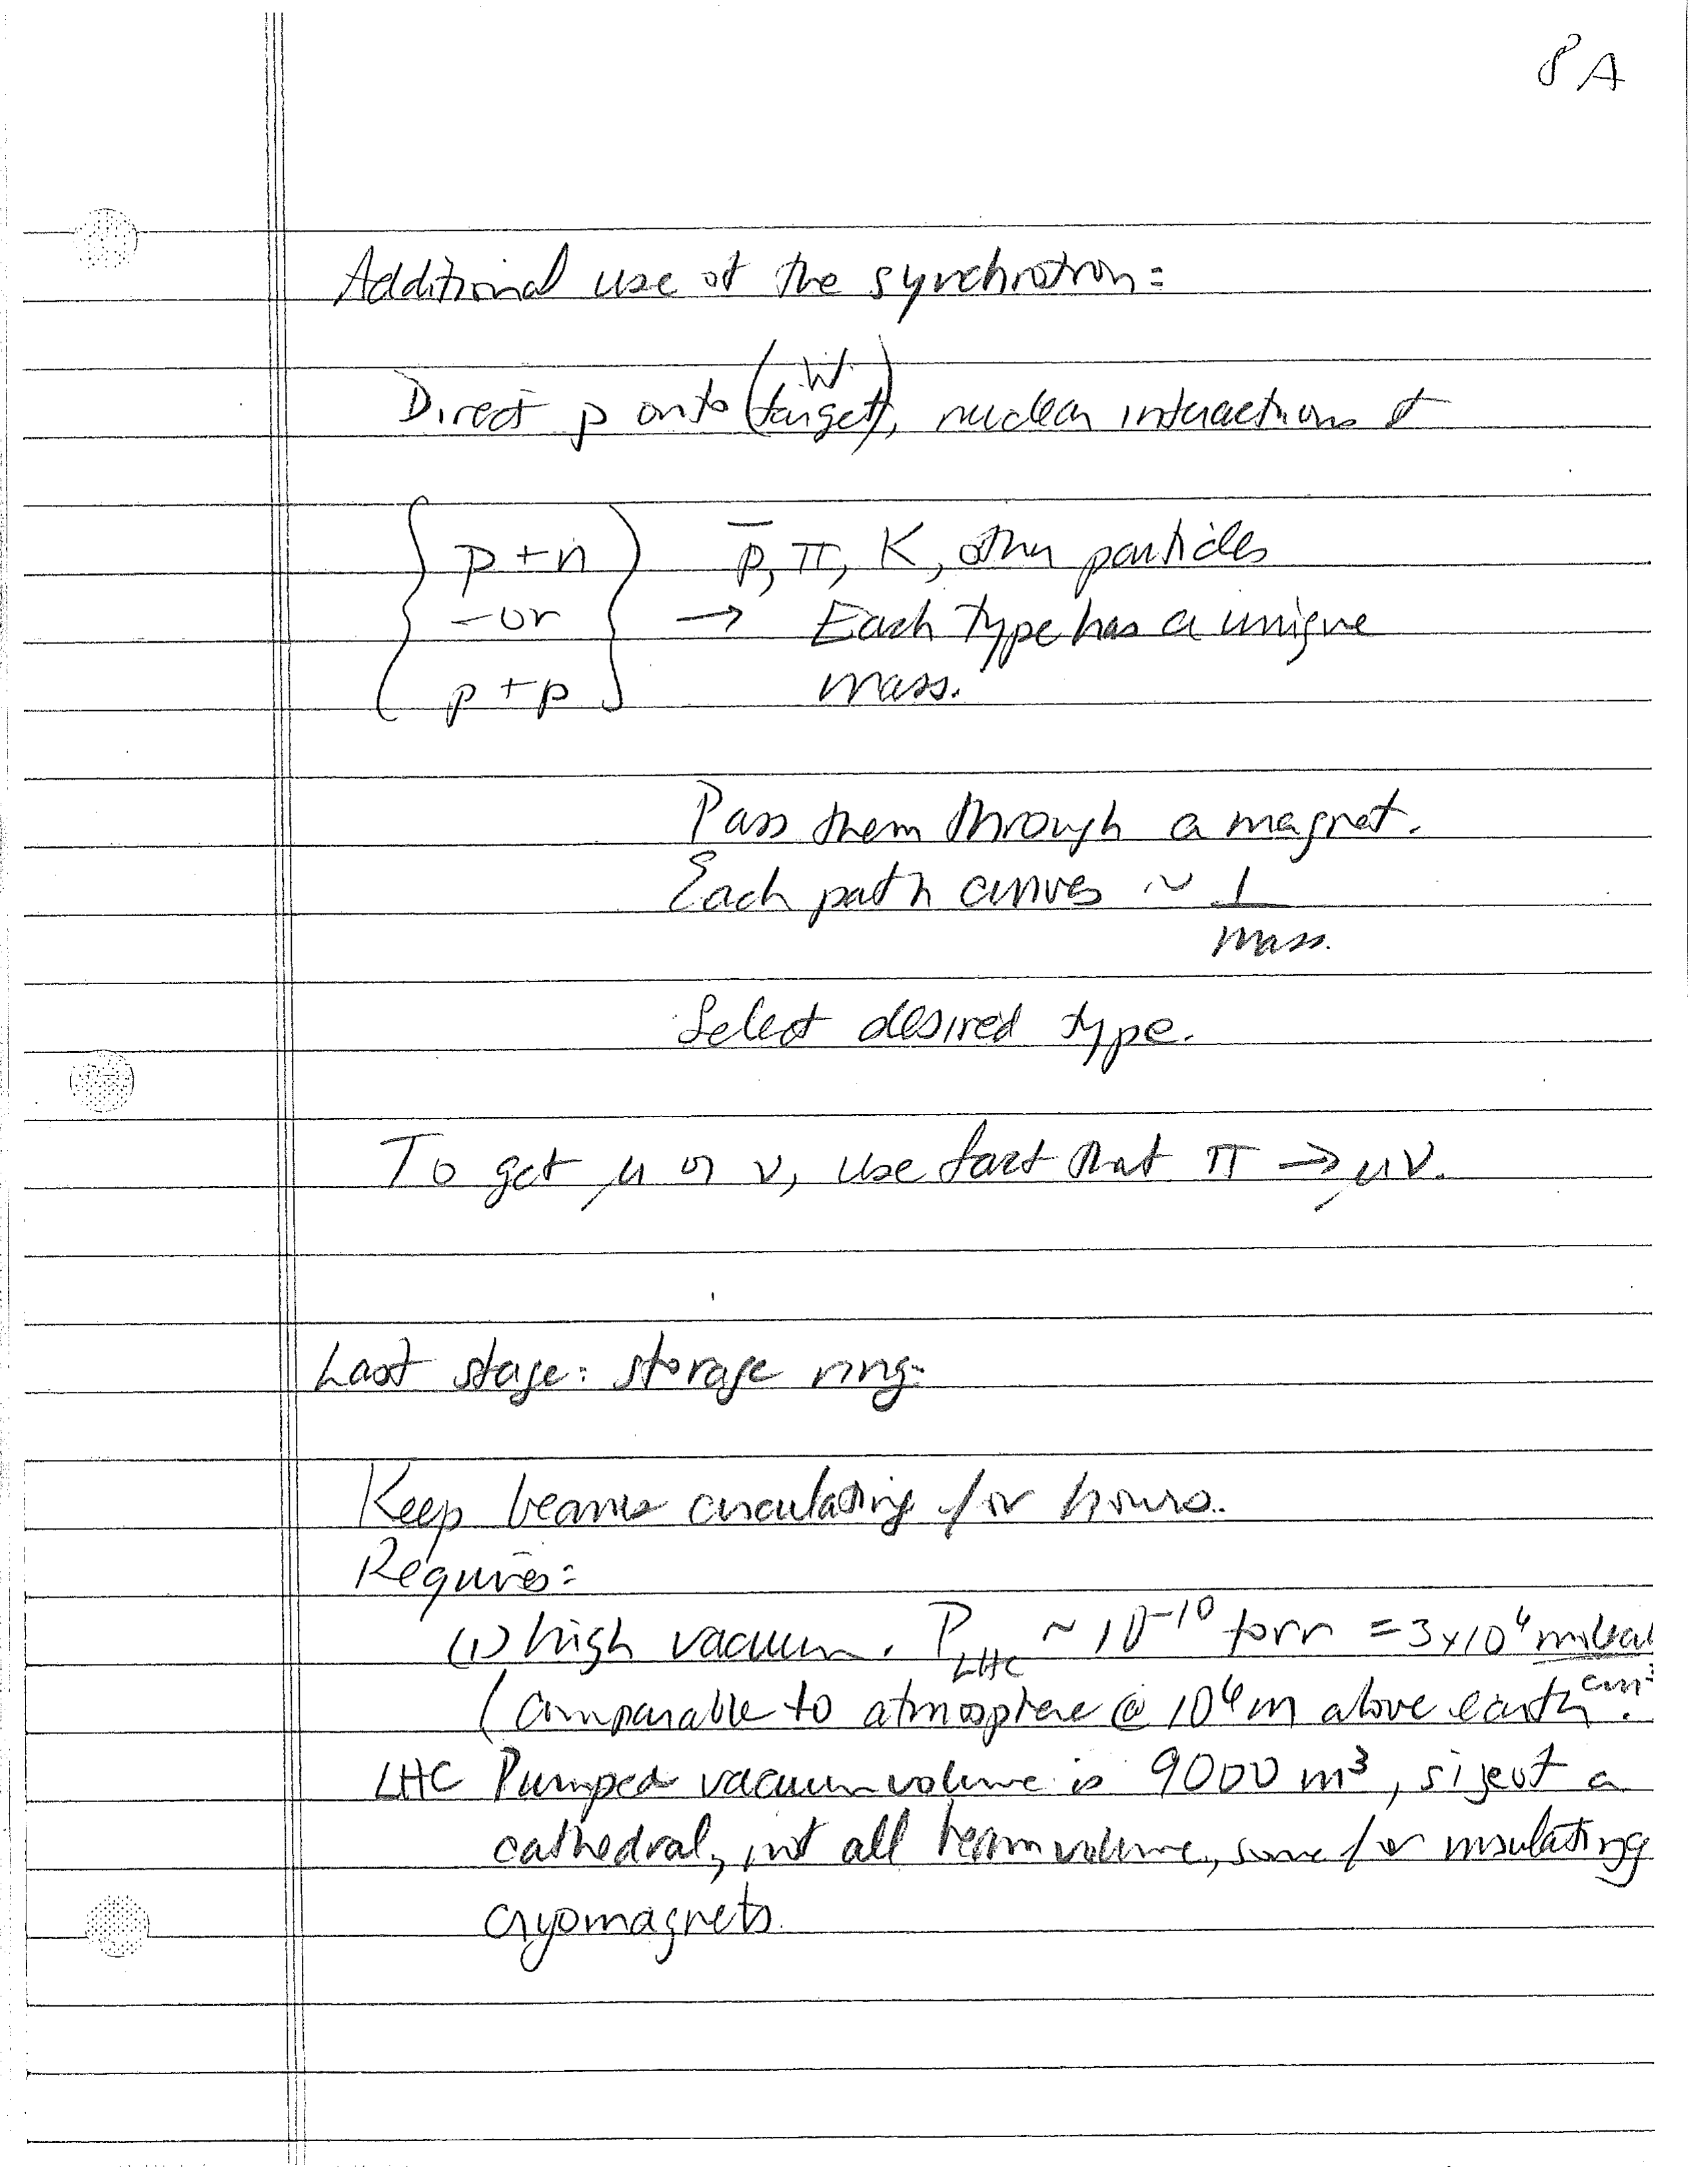 8A
Additional use of the synchrotron:
W
Direct p onto (target), nuclear interactions of
{ p+n } p̄, π, K, other particles
-or → Each type has a unique
p+p mass.
Pass them through a magnet.
Each path curves ~ 1
mass.
Select desired type.
To get μ or ν, use fact that π → μν.
Last stage: storage ring:
Keep beams circulating for hours.
Requires:
(1) high vacuum. P_LHC ~ 10^-10 torr = 3x10^6
(comparable to atmosphere @ 10^6 m above earth. cm³
LHC Pumped vacuum volume is 9000 m³, size of a
cathedral, not all beam volume, some for insulating
cryomagnets.